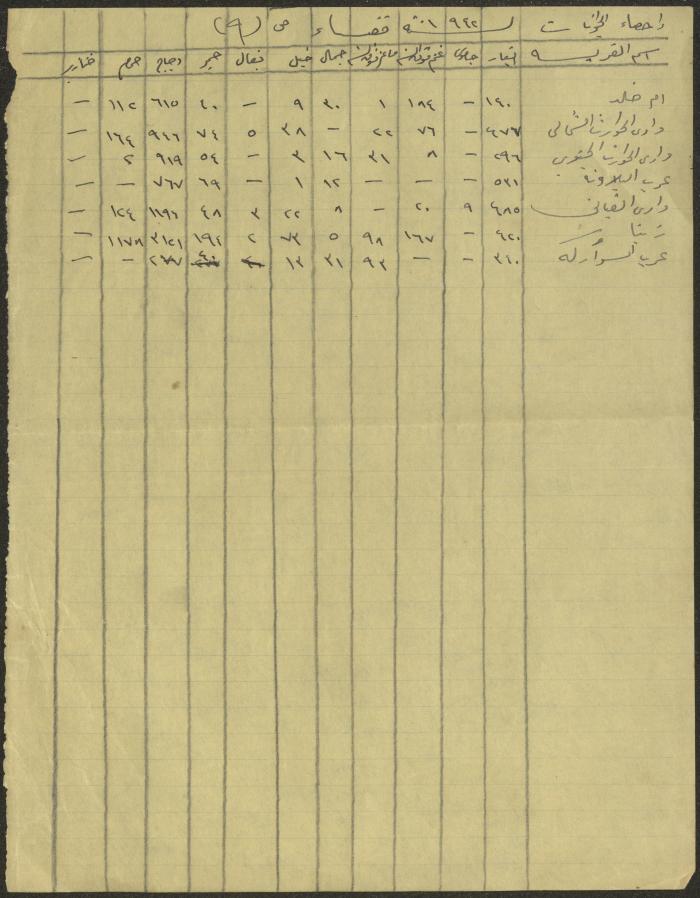 احصاء الحيوانات لسنة ١٩٤٢ قضاء ص (٩)
اسم القرية ابقار جاموس غنم فوق السنة ماعز فوق السنة جمال خيل بغال حمير دجاج حمام خنازير
ام خالد ١٤٠ – ١٨٤ ١ ٣٠ ٩ – ٤٠ ٦١٥ ١١٢ –
وادي الحوارث الشمالي ٤٧٧ – ٧٦ ٢٢ – ٣٨ ٥ ٧٤ ٩٤٦ ١٦٤ –
وادي الحوارث الجنوبي ٢٩٦ – ٨ ٣١ ١٦ ٣ – ٥٤ ٩١٩ ٢ –
عرب البلاونة ٥٣١ – – – ١٢ ١ – ٦٩ ٧٦٧ – –
وادي القباني ٤٨٥ ٩ ٢٠ – ٨ ٢٢ ٣ ٤٨ ١١٩٦ ١٢٤ –
زيتا ٤٢٠ – ١٦٧ ٩٨ ٥ ٧٣ ٢ ١٩٤ ٣١٢١ ١١٧٨ –
عرب السواركه ٣٤٠ – – ٩٣ ٣١ ١٣ ٤٠ ٢٧٧ – –